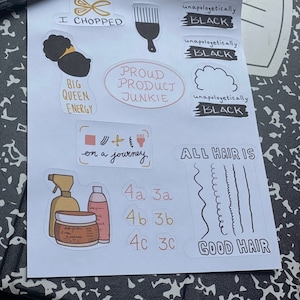 I CHOPPED
unapologetically
BLACK
unapologetically
BLACK
unapologetically
BLACK
PROUD
PRODUCT
JUNKIE
BIG
QUEEN
ENERGY
on a journey
ALL HAIR IS
GOOD HAIR
4a 3a
4b 3b
4c 3c